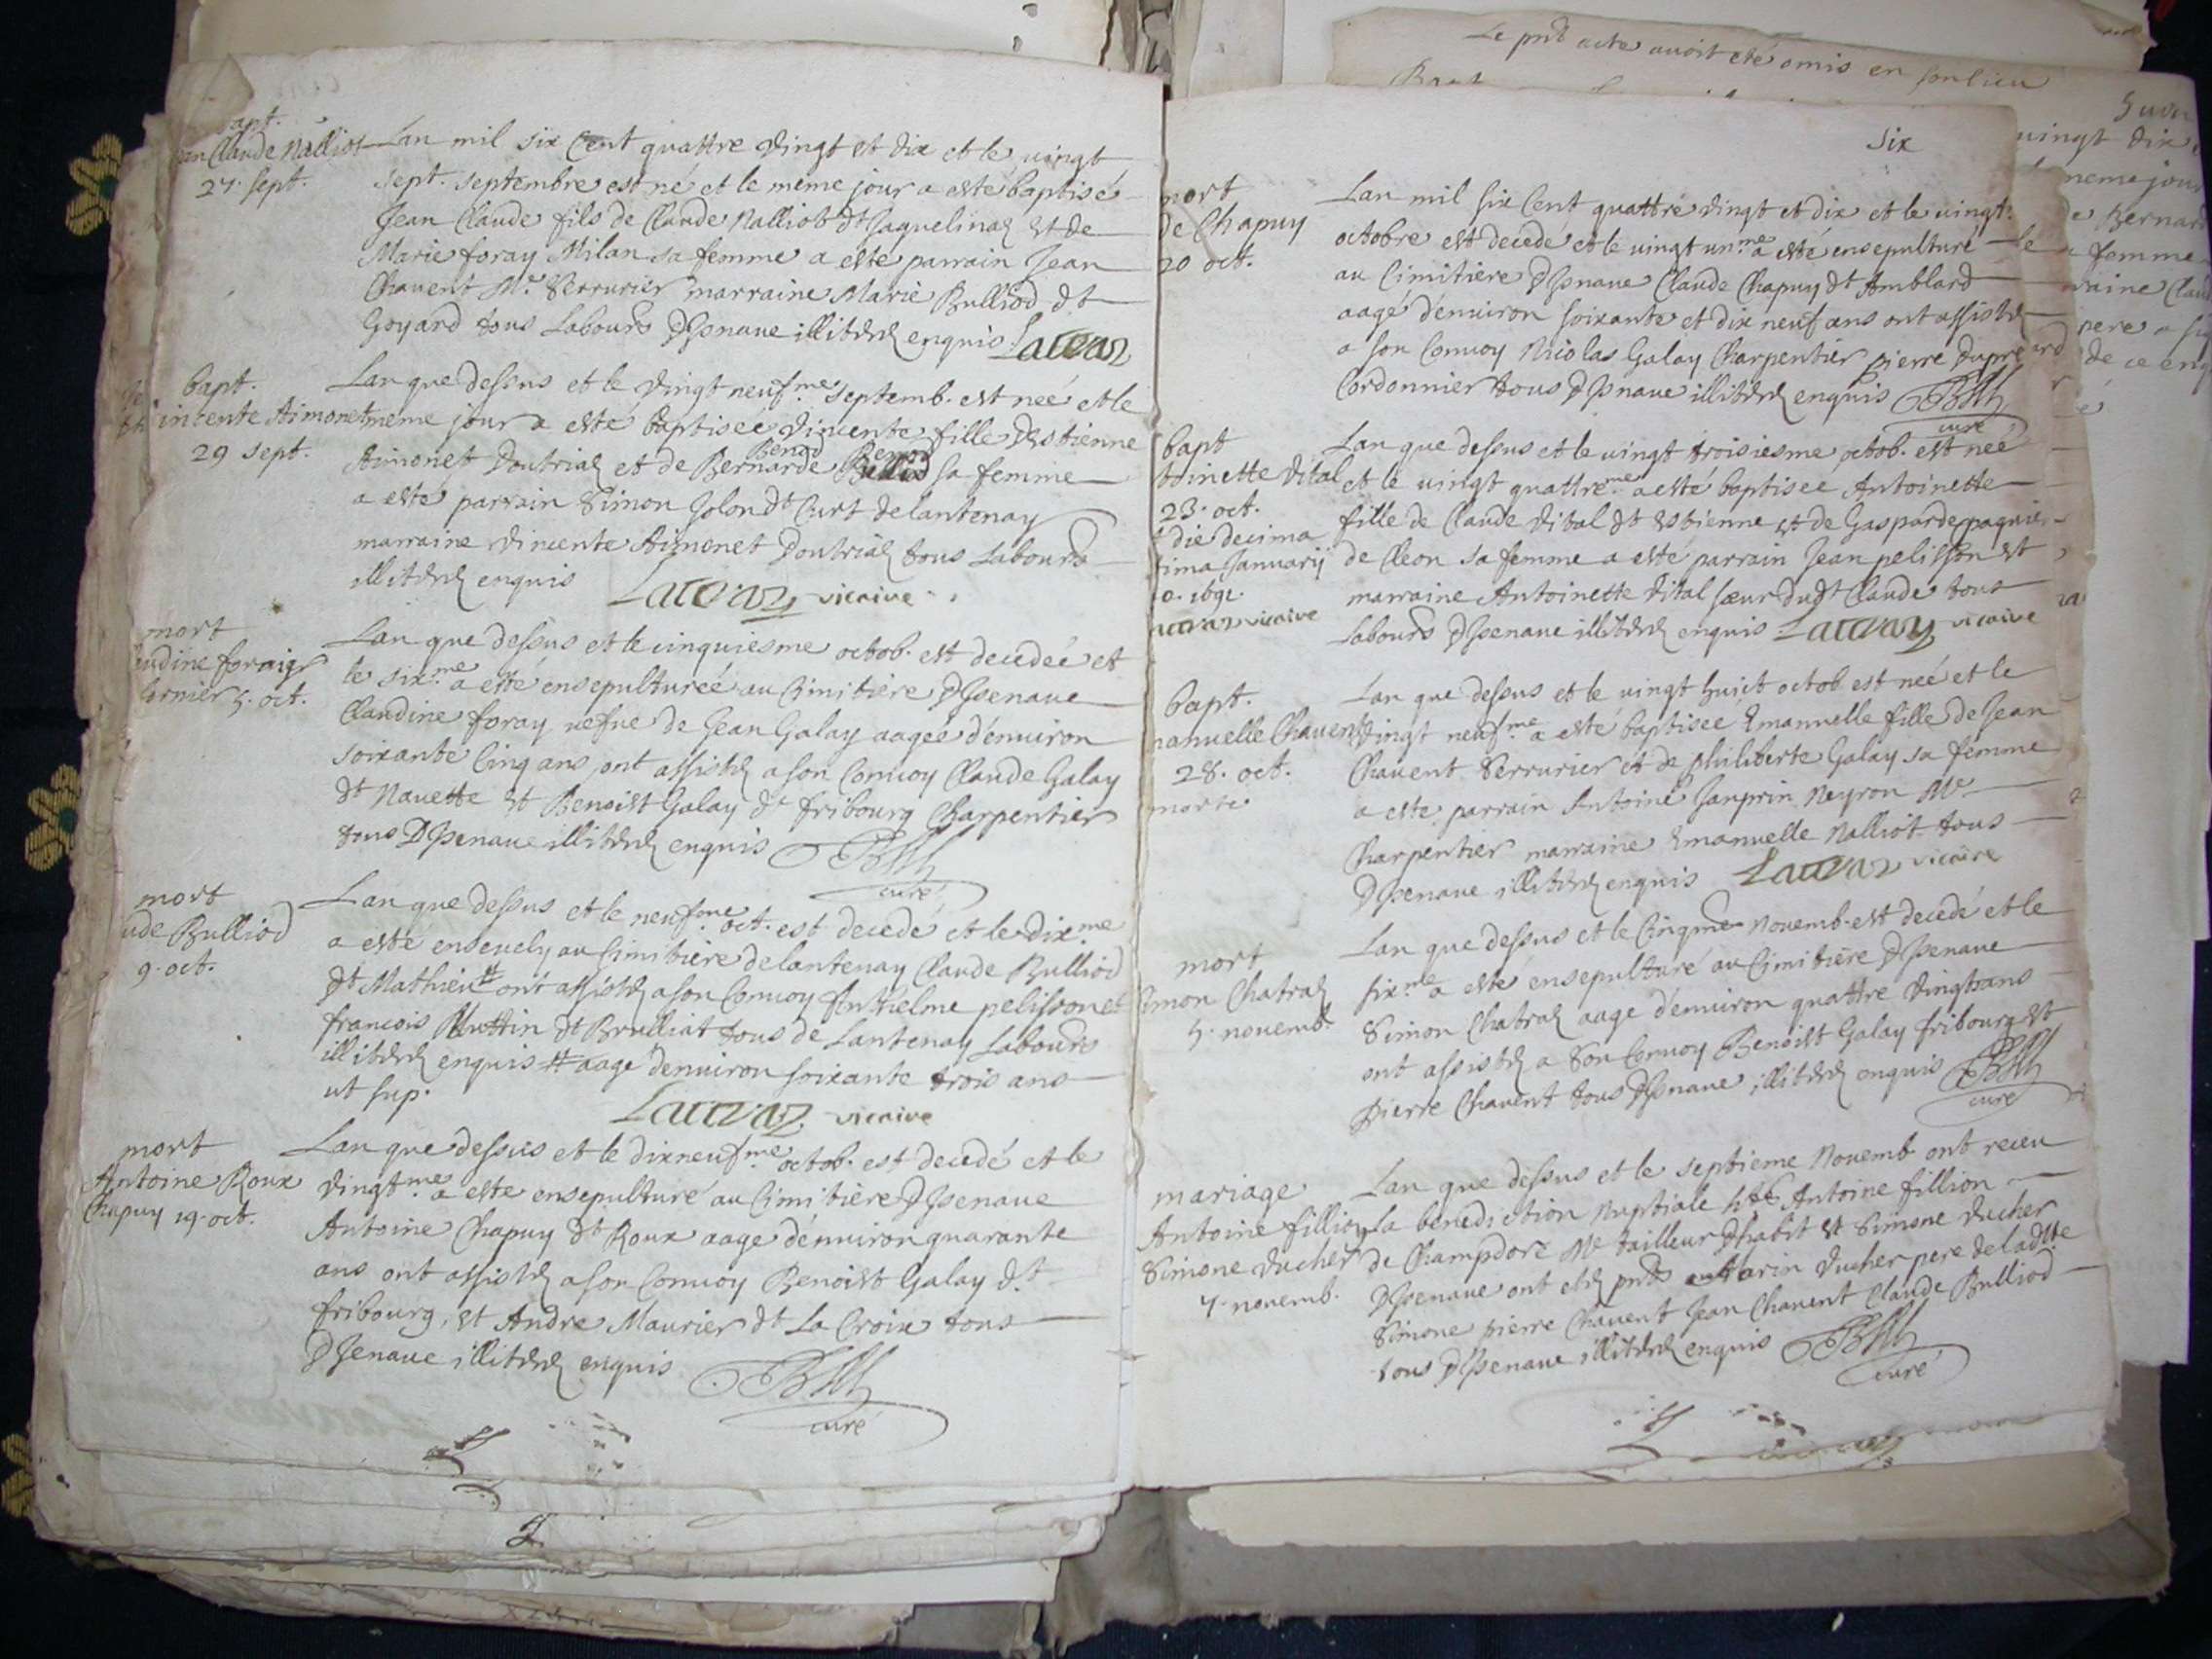 bapt.
Claude Nalliot
27. sept.
Lan mil six Cent quattre vingt et dix et le vingt
sept. septembre est né et le meme jour a esté baptisé
Jean Claude fils de Claude Nalliod dt Jaquelinaz et de
Marie foray Milan sa femme a esté parrain Jean
Chavent Me. Serrurier marraine Marie Bulliod dt
Goyard tous Labours DIsnave enquis
bapt.
Aimonet
29 sept.
Lan que dessus et le vingt neufme. septemb. est neé et le
meme jour a esté baptiseé vincente fille destienne
Aimonet Doutriaz et de Bernarde Benod sa femme
a esté parrain Simon Jolon dt Curt delantenay
marraine vincente Aimonet Doutriaz tous Labours
enquis vicaire
mort
5. oct.
Lan que dessus et le cinquiesme octob. est decedeé et
le sixme. a esté ensepultureé au Cimitiere DIsenave
Claudine foray vefue de Jean Galay aageé d'enuiron
soixante Cinq ans ont assistez a son Conuoy Claude Galay
dt Navette et Benoist Galay dt fribourg Charpentier
tous DIsenave enquis
curé
mort
Bulliod
9. oct.
Lan que dessus et le neufme. oct. est decedé et le dixme.
a esté enseuely au Cimitiere delantenay Claude Bulliod
dt Mathieu # ont assistez a son Conuoy Anthelme pelisson et
francois dt Brulliat tous de Lantenay Labours
enquis # aagé denuiron soixante trois ans
ut sup.
vicaire
mort
Antoine Roux
Chapuy 19. oct.
Lan que dessus et le dixneufme. octob. est decedé et le
vingtme. a esté ensepulturé au Cimitiere DIsenave
Antoine Chapuy dt Roux aagé d'enuiron quarante
ans ont assistez a son Conuoy Benoist Galay dt.
fribourg, et Andre Maurier dt La Croix tous
DIsenave enquis
curé
Le pnt acte auoit eté omis en son lieu
six
mort
de Chapuy
20 oct.
Lan mil six Cent quattre vingt et dix et le vingt.
octobre est decedé et le vingt unme. a esté ensepulturé
au Cimitiere DIsnave Claude Chapuy dt Amblard
aagé d'enuiron soixante et dix neuf ans ont assistez
a son Conuoy Nicolas Galay Charpentier pierre Dupré
Cordonnier tous DIsnave enquis
curé
bapt
vital
23. oct.
die decima
Januarij
1691.
vicaire
Lan que dessus et le vingt troisiesme octob. est neé
et le vingt quattreme. a esté baptiseé Antoinette
fille de Claude vital dt estienne et de Gasparde paquier
de Cleon sa femme a esté parrain Jean pelisson et
marraine Antoinette vital sœur dudt Claude tous
Labours DIsenave enquis vicaire
bapt.
Chavent
28. oct.
morte
Lan que dessus et le vingt huict octob est neé et le
vingt neufme. a esté baptiseé Emanuelle fille de Jean
Chavent Serrurier et de philiberte Galay sa femme
a esté parrain Antoine Janprin Neyron Me
Charpentier marraine Emanuelle Nalliot tous
DIsenave enquis vicaire
mort
Chatraz
5. novemb.
Lan que dessus et le Cinqme Novemb. est decedé et le
sixme. a esté ensepulturé au Cimitiere DIsenave
Simon Chatraz aagé d'enuiron quattre vingt ans
ont assistez a son Conuoy Benoist Galay fribourg et
pierre Chavent tous DIsnave enquis
curé
mariage
Antoine fillion
Simone Ducher
7. novemb.
Lan que dessus et le septieme Novemb ont receu
la benediction Nuptiale Antoine fillion
de Champdore Me tailleur dhabit et Simone Ducher
DIsenave ont etez pnts Marin Ducher pere de ladtte
Simone pierre Chavent Jean Chavent Claude Bulliod
tous DIsenave enquis
curé
vingt dix
meme jour
femme